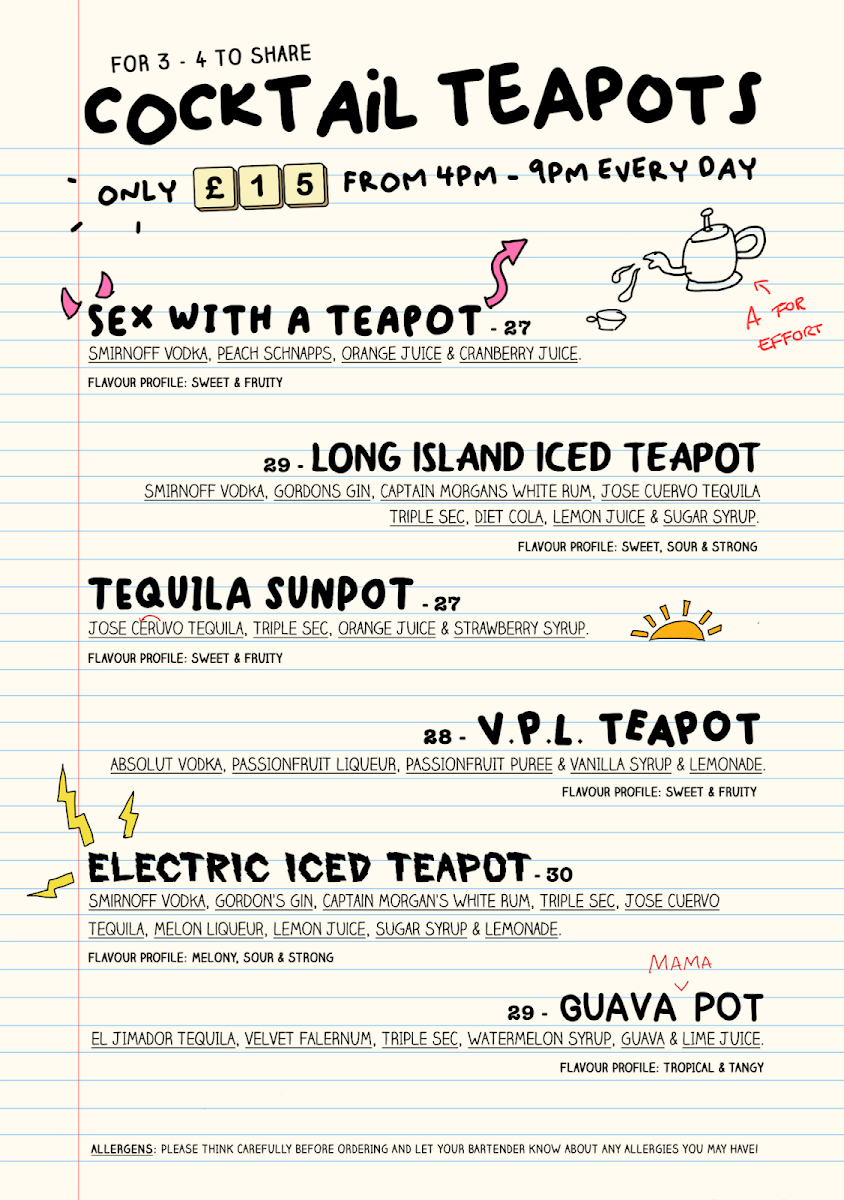 FOR 3 - 4 TO SHARE
COCKTAiL TEAPOTS
ONLY £15 FROM 4PM - 9PM EVERY DAY
SEX WITH A TEAPOT - 27
SMIRNOFF VODKA, PEACH SCHNAPPS, ORANGE JUICE & CRANBERRY JUICE.
FLAVOUR PROFILE: SWEET & FRUITY
A FOR
EFFORT
29 - LONG ISLAND ICED TEAPOT
SMIRNOFF VODKA, GORDONS GIN, CAPTAIN MORGANS WHITE RUM, JOSE CUERVO TEQUILA
TRIPLE SEC, DIET COLA, LEMON JUICE & SUGAR SYRUP.
FLAVOUR PROFILE: SWEET, SOUR & STRONG
TEQUILA SUNPOT - 27
JOSE CERUVO TEQUILA, TRIPLE SEC, ORANGE JUICE & STRAWBERRY SYRUP.
FLAVOUR PROFILE: SWEET & FRUITY
28 - V.P.L. TEAPOT
ABSOLUT VODKA, PASSIONFRUIT LIQUEUR, PASSIONFRUIT PUREE & VANILLA SYRUP & LEMONADE.
FLAVOUR PROFILE: SWEET & FRUITY
ELECTRIC ICED TEAPOT - 30
SMIRNOFF VODKA, GORDON'S GIN, CAPTAIN MORGAN'S WHITE RUM, TRIPLE SEC, JOSE CUERVO
TEQUILA, MELON LIQUEUR, LEMON JUICE, SUGAR SYRUP & LEMONADE.
FLAVOUR PROFILE: MELONY, SOUR & STRONG
MAMA
29 - GUAVA POT
EL JIMADOR TEQUILA, VELVET FALERNUM, TRIPLE SEC, WATERMELON SYRUP, GUAVA & LIME JUICE.
FLAVOUR PROFILE: TROPICAL & TANGY
ALLERGENS: PLEASE THINK CAREFULLY BEFORE ORDERING AND LET YOUR BARTENDER KNOW ABOUT ANY ALLERGIES YOU MAY HAVE!